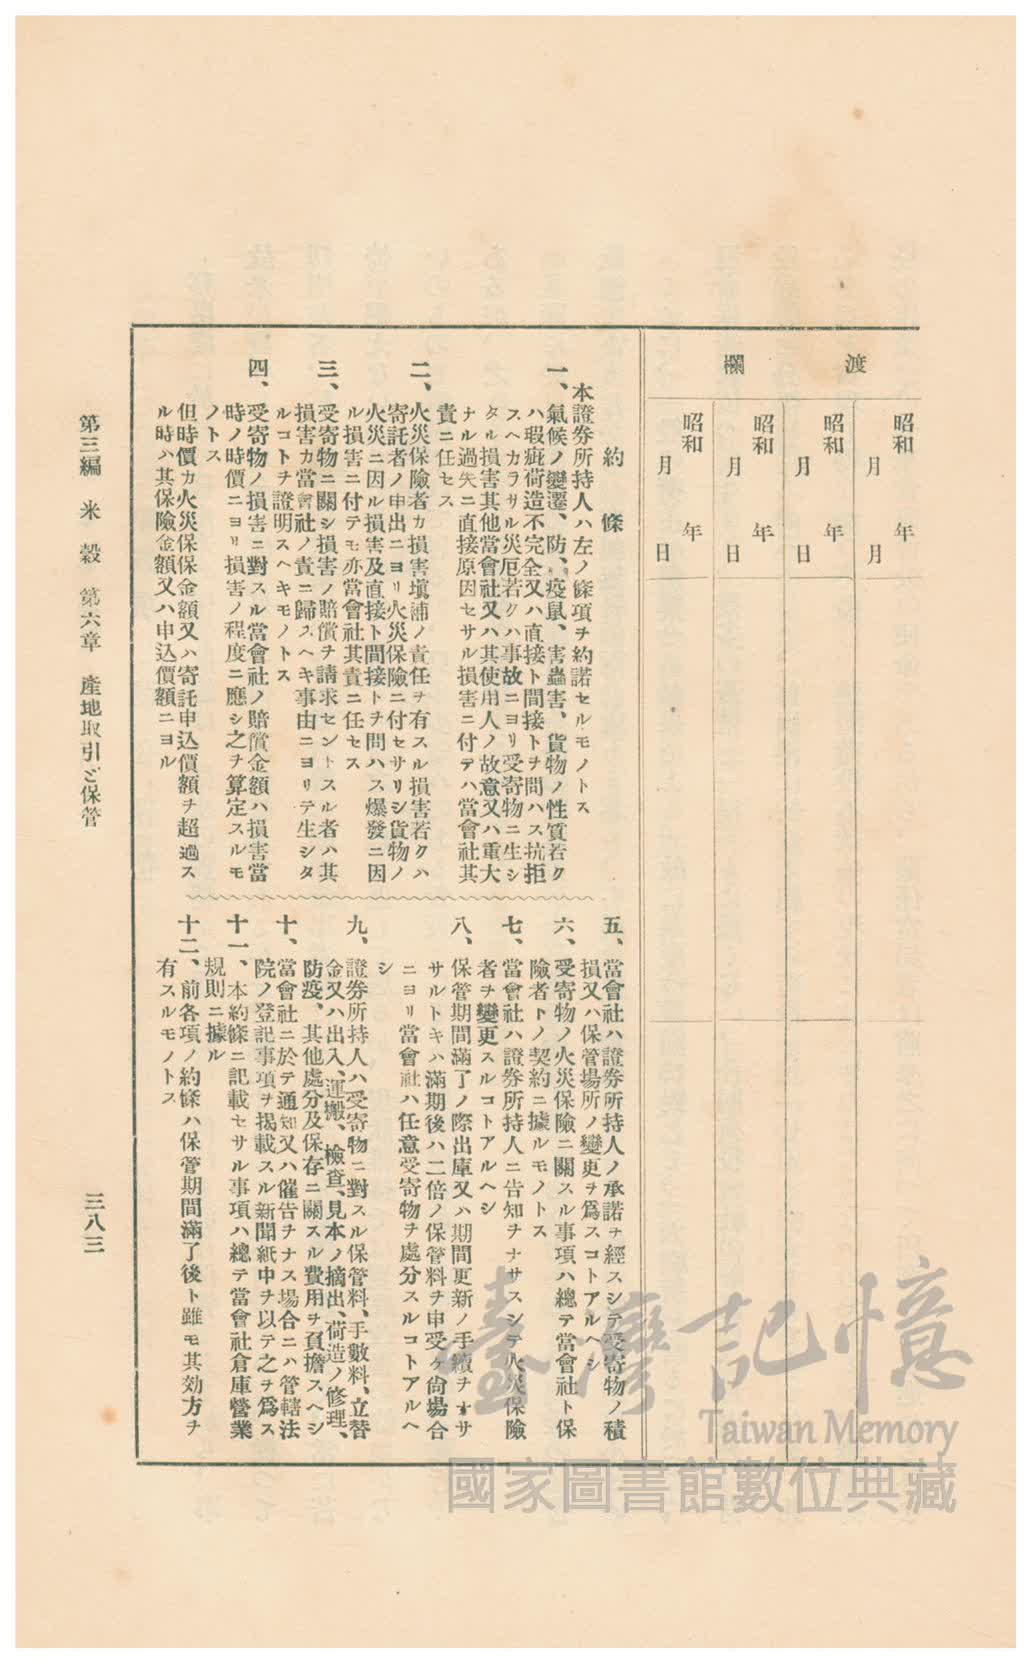 渡
欄
昭和 年 月
昭和 年 月 日
昭和 年 月 日
昭和 年 月 日
約條
本證券所持人ハ左ノ條項チ約諾セルモノトス
一、氣候ノ變遷、防、疫鼠、害蟲害、貨物ノ性質若ク
ハ瑕疵荷造不完全又ハ直接ト間接トチ問ハス抗拒
スヘカラサル災厄若クハ事故ニヨリ受寄物ニ生シ
タル損害其他當會社又ハ其使用人ノ故意又ハ重大
ナル過失ニ直接原因セサル損害ニ付テハ當會社其
責ニ任セス
二、火災保險者カ損害塡補ノ責任ヲ有スル損害若クハ
寄託者ノ申出ニヨリ火災保險ニ付セサリシ貨物ノ
火災ニ因ル損害及直接ト間接トチ問ハス爆發ニ因
ル損害ニ付テモ亦當會社其責ニ任セス
三、受寄物ニ關シ損害ノ賠償チ請求セントスル者ハ其
損害カ當會社ノ責ニ歸スヘキ事由ニヨリテ生シタ
ルコトチ證明スヘキモノトス
四、受寄物ノ損害ニ對スル當會社ノ賠償金額ハ損害當
時ノ時價ニヨリ損害ノ程度ニ應シ之チ算定スルモ
ノトス
但時價カ火災保保金額又ハ寄託申込價額チ超過ス
ル時ハ其保險金額又ハ申込價額ニヨル
五、當會社ハ證券所持人ノ承諾チ經スシテ受寄物ノ積
損又ハ保管場所ノ變更チ爲スコトアルヘシ
六、受寄物ノ火災保險ニ關スル事項ハ總テ當會社ト保
險者トノ契約ニ據ルモノトス
七、當會社ハ證券所持人ニ告知チナサスシテ火災保險
者チ變更スルコトアルヘシ
八、保管期間滿了ノ際出庫又ハ期間更新ノ手續チナサ
サルトキハ滿期後ハ二倍ノ保管料チ申受ケ尙場合
ニヨリ當會社ハ任意受寄物チ處分スルコトアルヘ
シ
九、證券所持人ハ受寄物ニ對スル保管料、手數料、立替
金又ハ出入、運搬、檢查、見本ノ摘出、荷造ノ修理、
防疫、其他處分及保存ニ關スル費用チ負擔スヘシ
十、當會社ニ於テ通知又ハ催告チナス場合ニハ管轄法
院ノ登記事項ヲ揭載スル新聞紙中チ以テ之チ爲ス
十一、本約條ニ記載セサル事項ハ總テ當會社倉庫營業
規則ニ據ル
十二、前各項ノ約條ハ保管期間滿了後ト雖モ其効方チ
有スルモノトス
第三編 米穀 第六章 產地取引と保管
三八三
臺灣記憶
Taiwan Memory
國家圖書館數位典藏